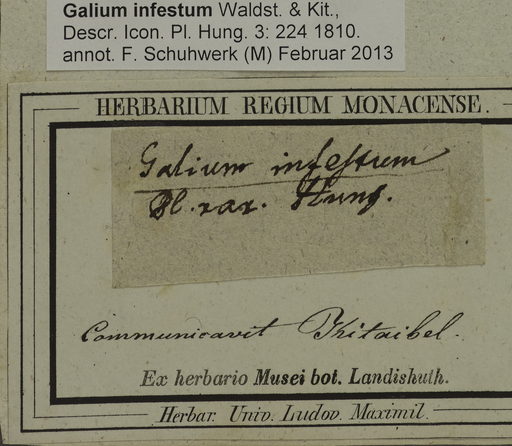 Galium infestum Waldst. & Kit.,
Descr. Icon. Pl. Hung. 3: 224 1810.
annot. F. Schuhwerk (M) Februar 2013
HERBARIUM REGIUM MONACENSE.
Galium infestum
Pl. rar. Hung.
Communicavit Kitaibel.
Ex herbario Musei bot. Landishuth.
Herbar. Univ. Ludov. Maximil.